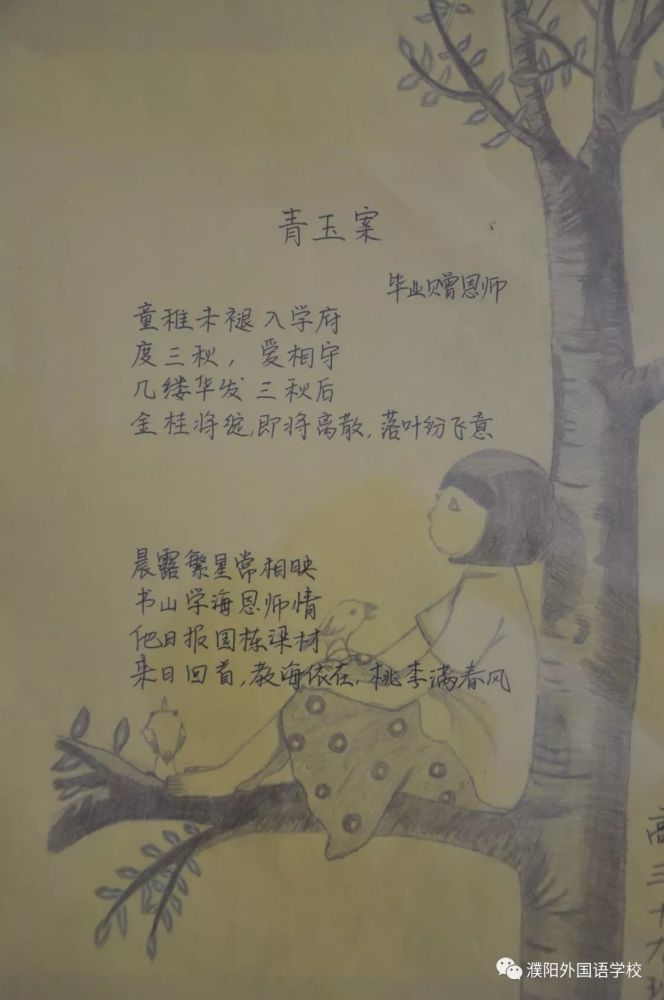 青玉案
毕业赠恩师
童稚未褪入学府
度三秋，爱相守
几缕华发三秋后
金桂将绽，即将离散，落叶纷飞意
晨露繁星常相映
书山学海恩师情
他日报国栋梁材
来日回首，教海依在，桃李满春风
高三十九班
濮阳外国语学校